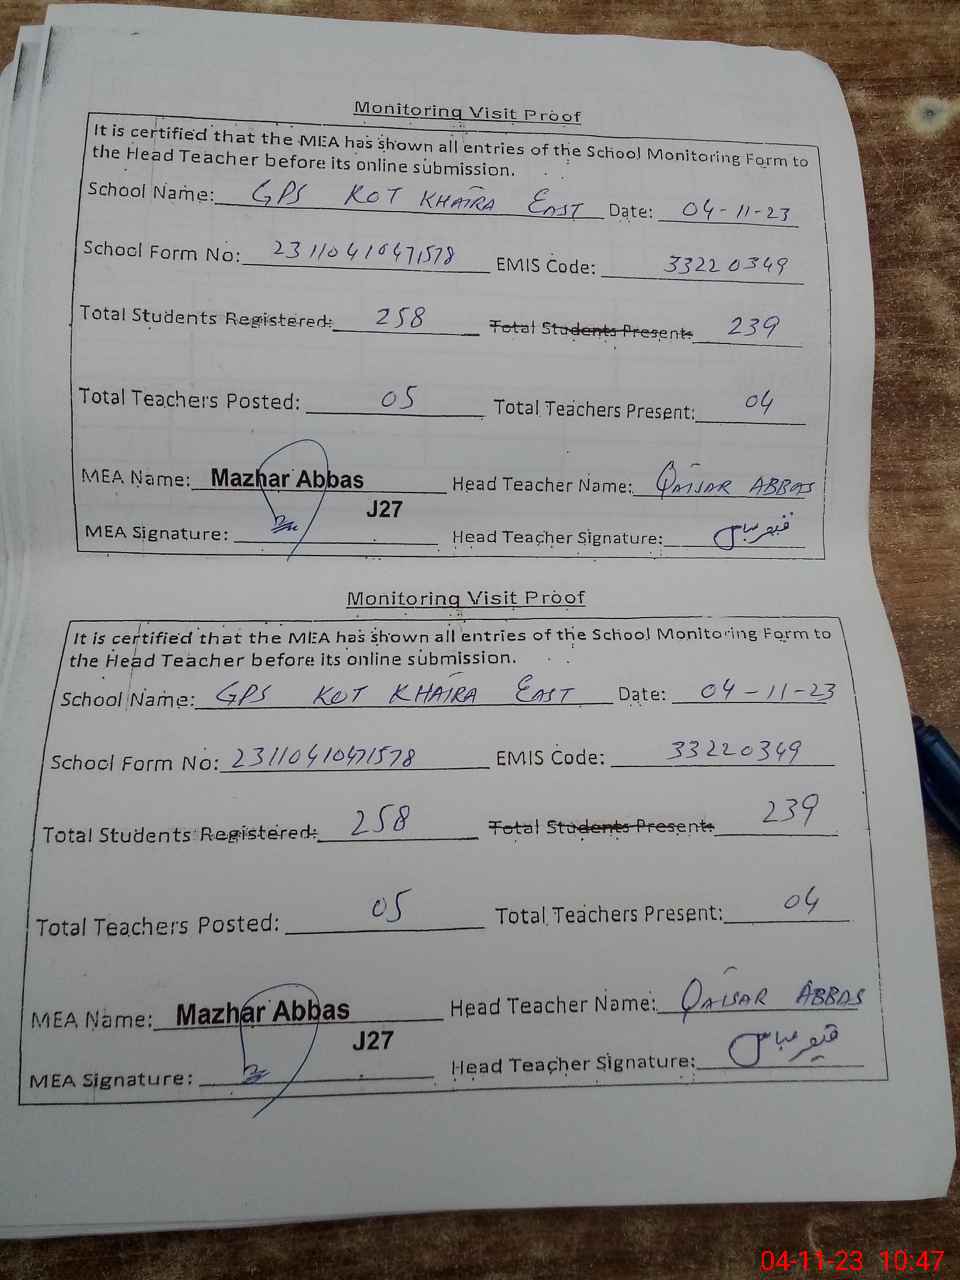 Monitoring Visit Proof
It is certified that the MEA has shown all entries of the School Monitoring Form to
the Head Teacher before its online submission.
School Name: GPS KOT KHAIRA EAST Date: 04-11-23
School Form No: 23110410471578 EMIS Code: 33220349
Total Students Registered: 258 Total Students Present: 239
Total Teachers Posted: 05 Total Teachers Present: 04
MEA Name: Mazhar Abbas Head Teacher Name: QAISAR ABBAS
J27
MEA Signature: Head Teacher Signature: قیصر عباس
Monitoring Visit Proof
It is certified that the MEA has shown all entries of the School Monitoring Form to
the Head Teacher before its online submission.
School Name: GPS KOT KHAIRA EAST Date: 04-11-23
School Form No: 23110410471578 EMIS Code: 33220349
Total Students Registered: 258 Total Students Present: 239
Total Teachers Posted: 05 Total Teachers Present: 04
MEA Name: Mazhar Abbas Head Teacher Name: QAISAR ABBAS
J27
MEA Signature: Head Teacher Signature: قیصر عباس
04-11-23 10:47